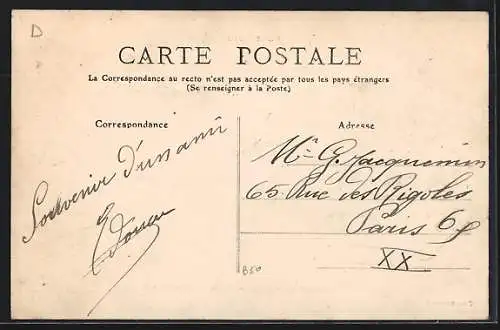 D
CARTE POSTALE
La Correspondance au recto n'est pas acceptée par tous les pays étrangers
(Se renseigner à la Poste)
Correspondance
Adresse
Souvenir d'un ami
Mr G. Jacquemin
65 Rue des Rigoles
Paris
XX
B50